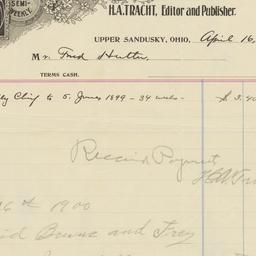 SEMI-
WEEKLY
H.A. TRACHT, Editor and Publisher.
UPPER SANDUSKY, OHIO, April 16,
Mr. Fred Hutter
TERMS CASH.
to 5. June 1899 - 34 wks - $3.40
Received Payment
H.A. Tra
16th 1900
and Frey